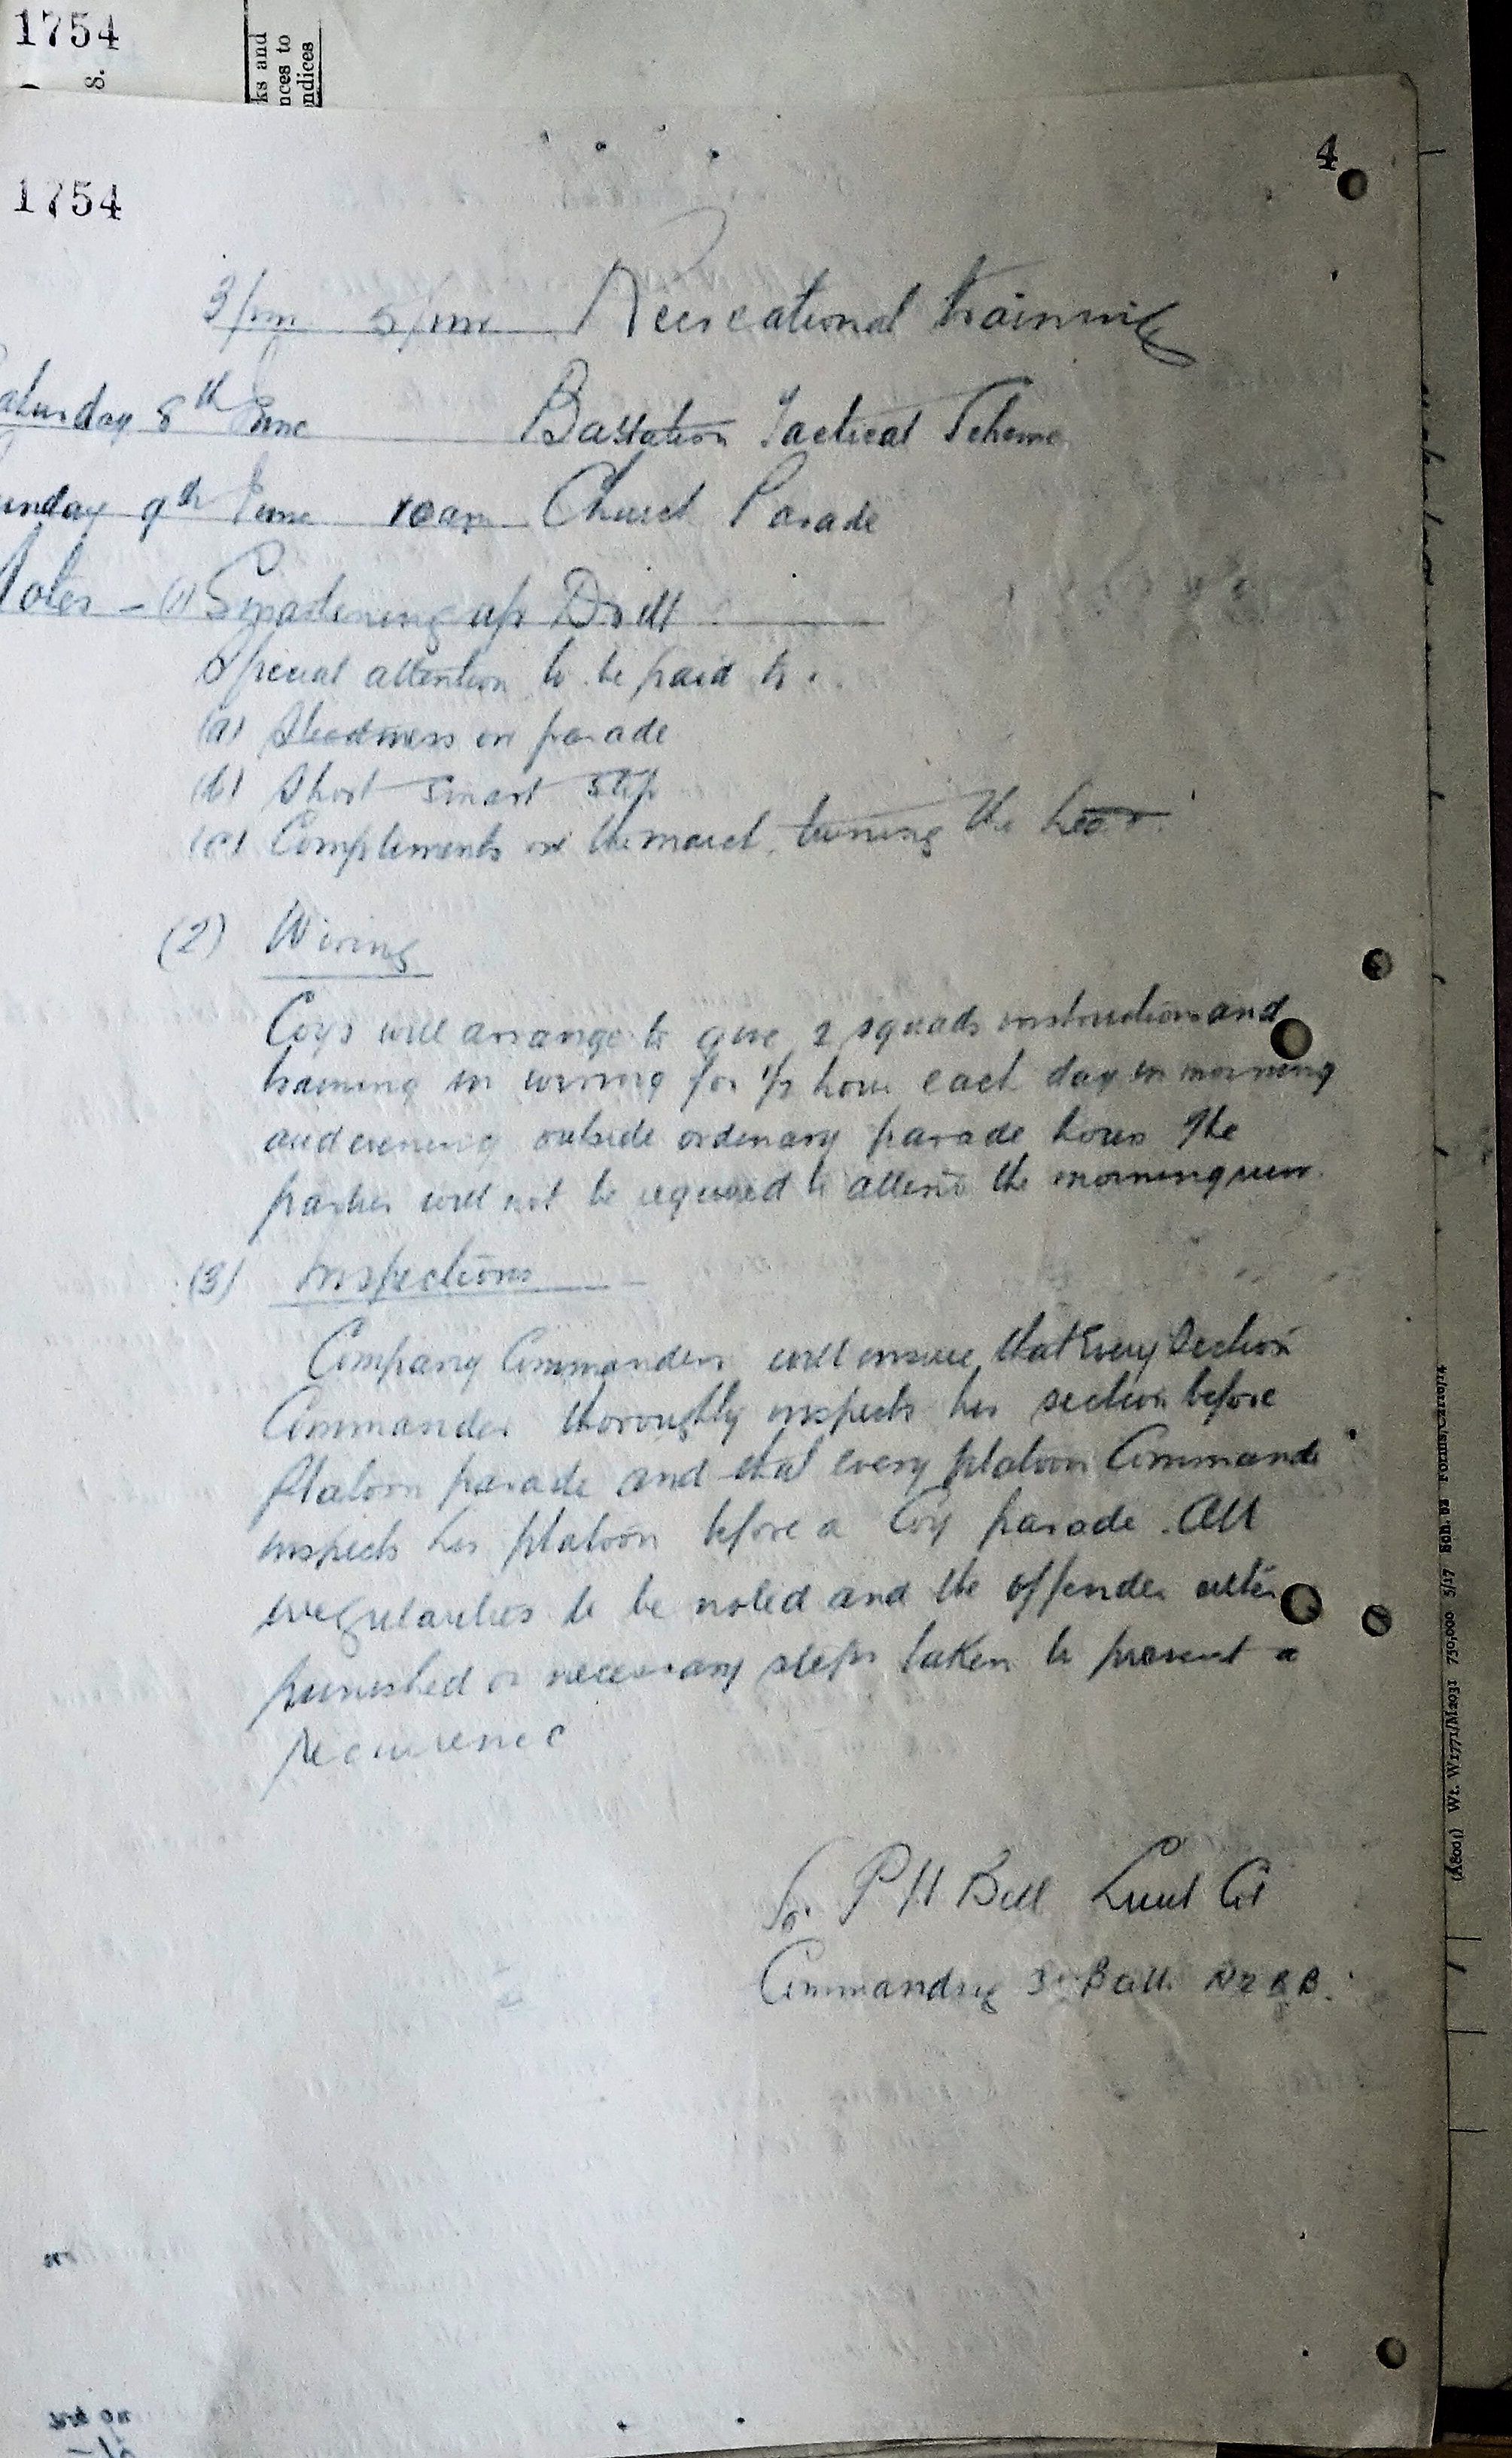 1754
8.
ks and
nces to
ndices
1754
4
3/pm 5/pm Recreational training
aturday 8th June Battalion Tactical Scheme
unday 9th June 10am Church Parade
Notes - (1) Smartening up Drill
Special attention to be paid to.
(a) Steadiness on parade
(b) Short smart step
(c) Compliments on the march, turning the head
(2) Wiring
Coys will arrange to give 2 squads instruction and
training in wiring for 1/2 hour each day in morning
and evening outside ordinary parade hours The
parties will not be required to attend the morning run.
(3) Inspections
Company Commanders will ensure that Every Section
Commander thoroughly inspects his section before
Platoon parade and that every platoon Commande
inspects his platoon before a Coy parade. All
irregularities to be noted and the offender
punished or necessary steps taken to prevent a
recurrence
for P H Bell Lieut Col
Commanding 3 Batt. NZRB.
(A8001) Wt. W1771/M2031 750,000 5/17 Sch. 52 Forms/C2118/14